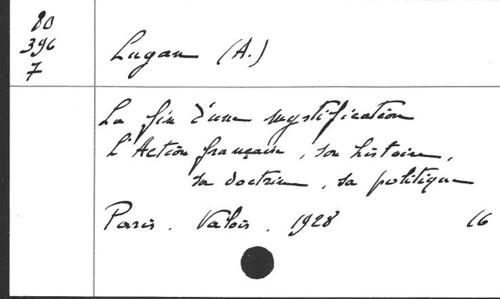 80
396
7
Lugan (A.)
La fin d'une mystification
L'Action française, son histoire,
sa doctrine, sa politique
Paris. Valois. 1928 16